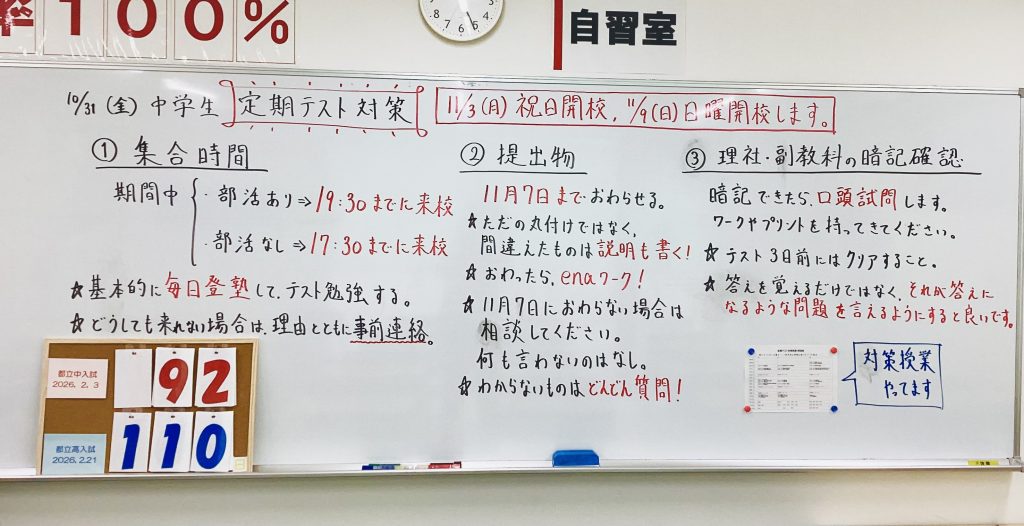 率100%
自習室
10/31(金)中学生 定期テスト対策 11/3(月)祝日開校, 11/9(日)日曜開校します。
① 集合時間
期間中
・部活あり⇒19:30までに来校
・部活なし⇒17:30までに来校
☆基本的に毎日登塾して、テスト勉強する。
☆どうしても来れない場合は、理由とともに事前連絡。
② 提出物
11月7日までにおわらせる。
☆ただの丸付けではなく、
間違えたものは説明も書く!
☆おわったら、enaワーク!
☆11月7日におわらない場合は
相談してください。
何も言わないのはなし。
☆わからないものはどんどん質問!
③ 理社・副教科の暗記確認
暗記できたら、口頭試問します。
ワークやプリントを持ってきてください。
☆テスト3日前にはクリアすること。
☆答えを覚えるだけではなく、それが答えに
なるような問題を言えるようにすると良いです。
対策授業
やってます
都立中入試
2026.2.3
92
都立高入試
2026.2.21
110
日